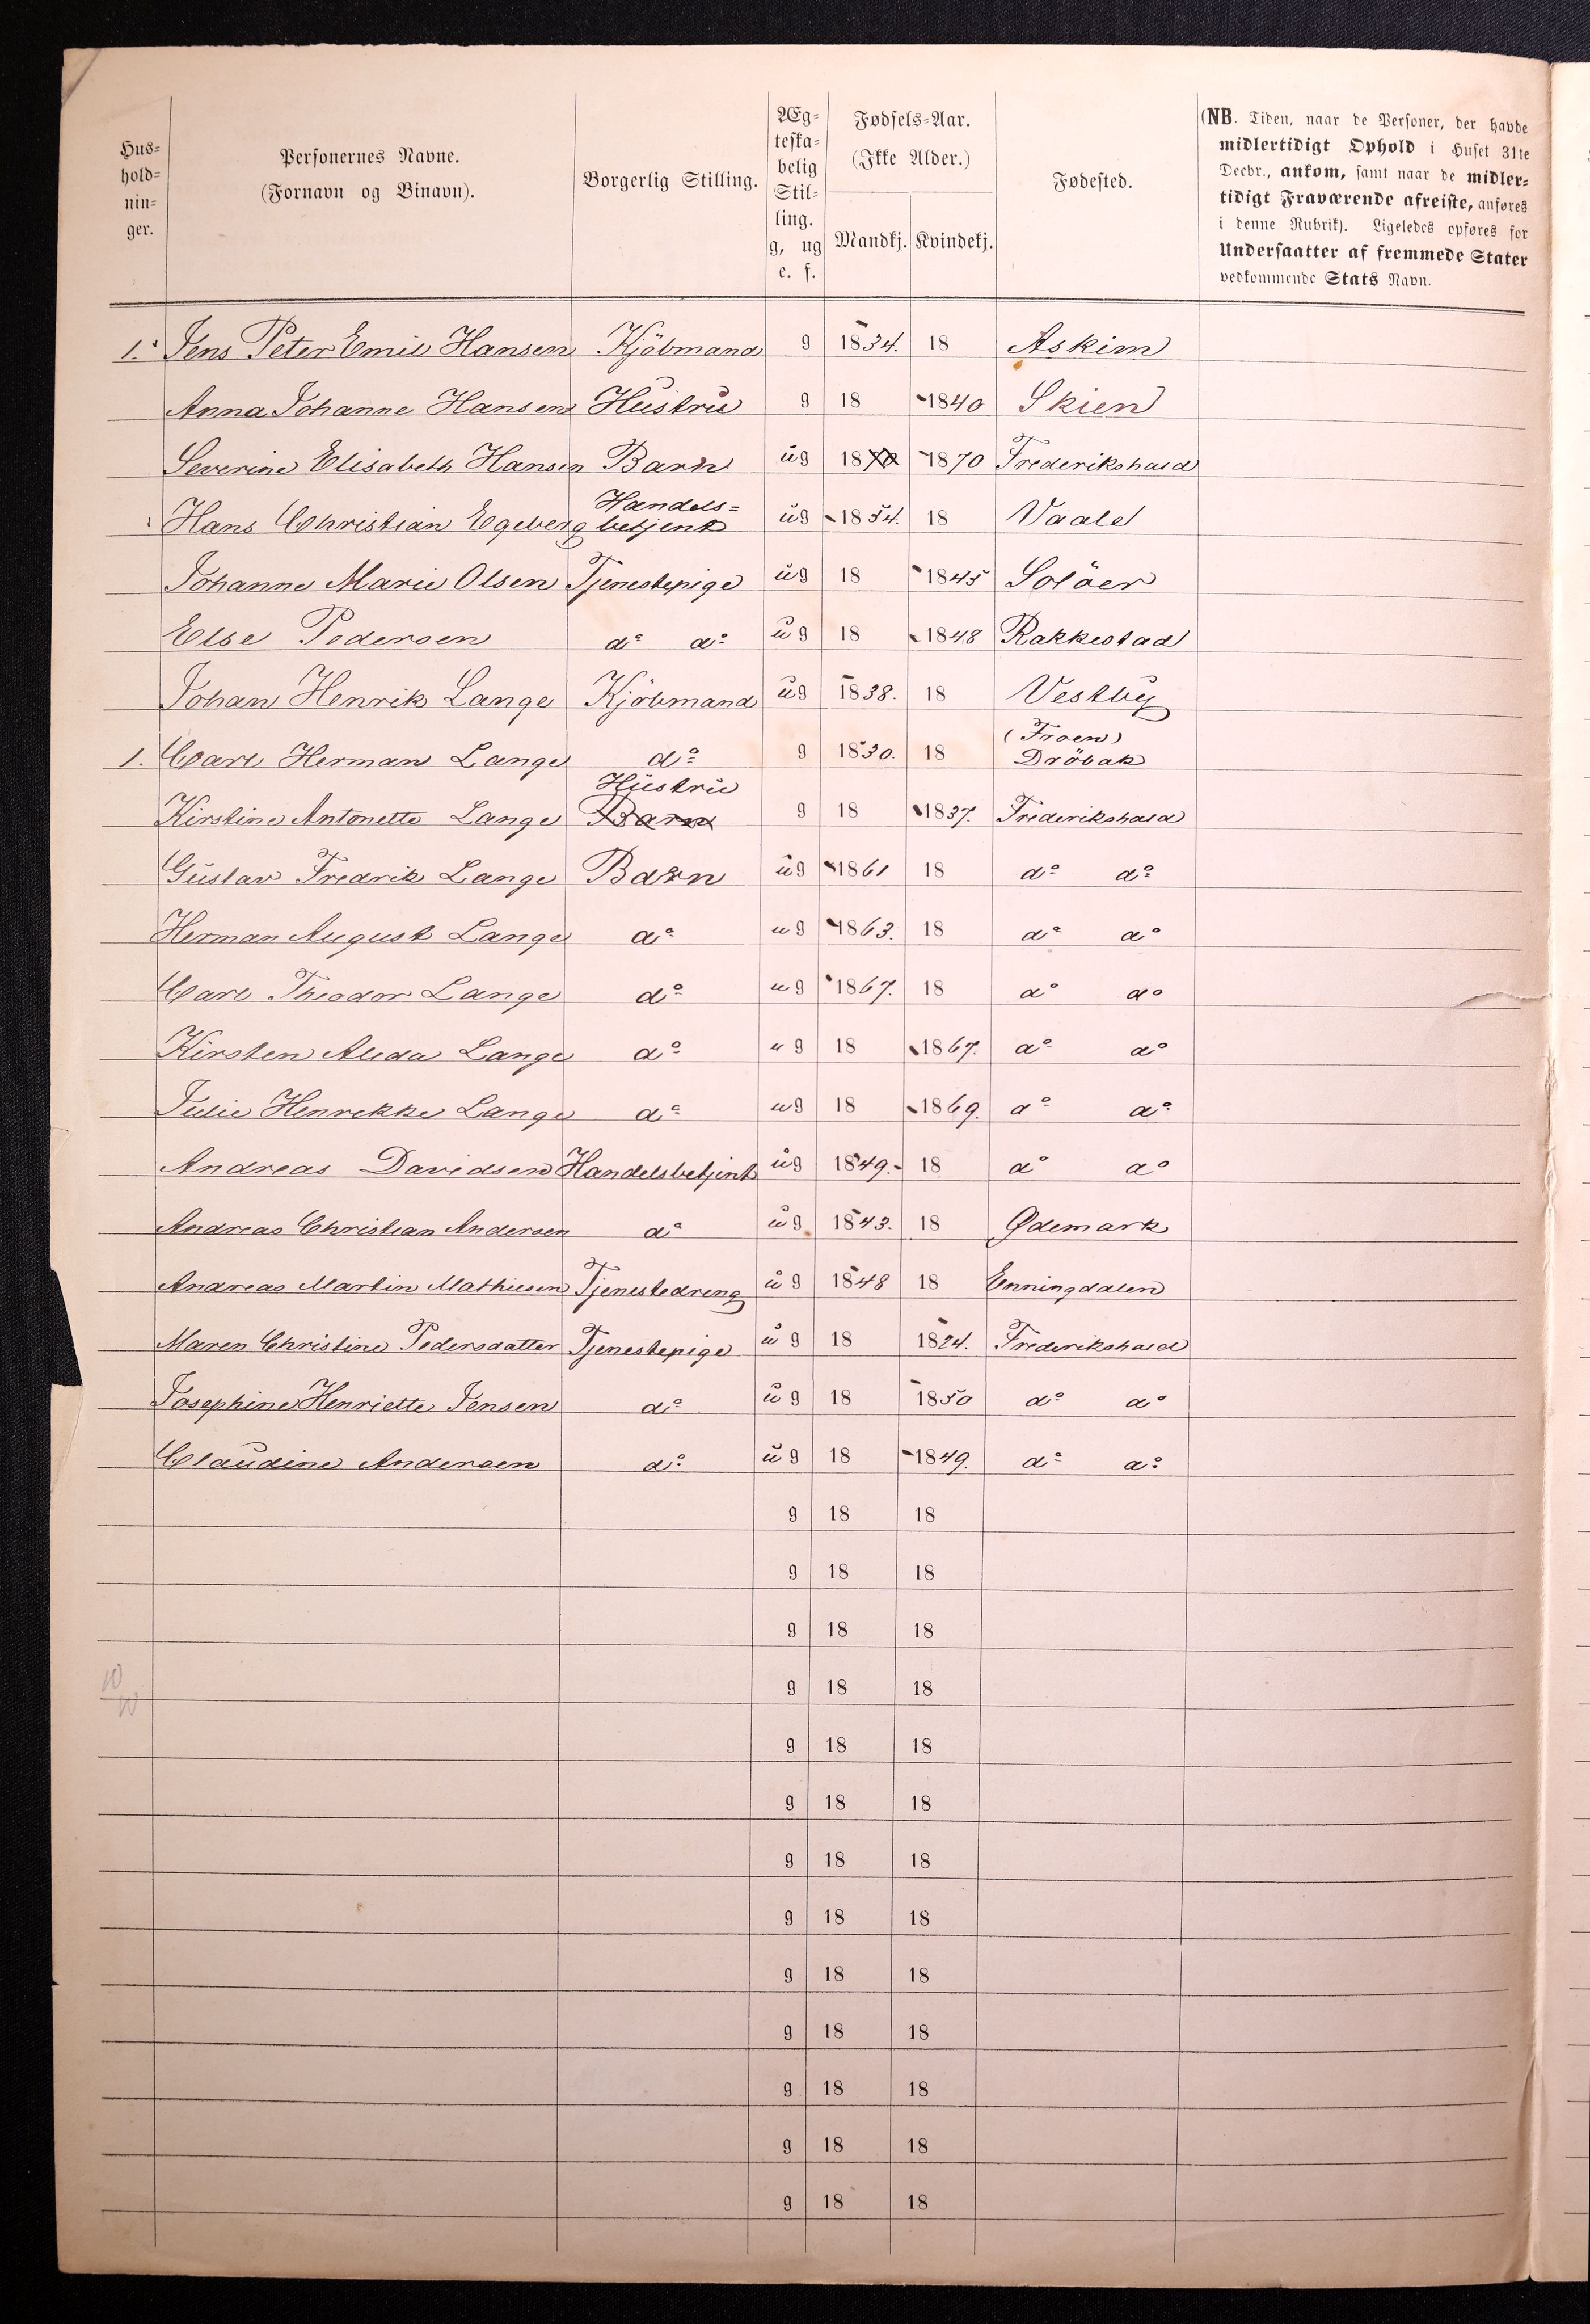 Hus-
hold-
nin-
ger.
Personernes Navne.
(Fornavn og Binavn).
Borgerlig Stilling.
Æg-
teska-
belig
Stil-
ling.
g, ug
e. f.
Fødsels-Aar.
(Ikke Alder.)
Mandkj. Kvindekj.
Fødested.
(NB. Tiden, naar de Personer, der havde
midlertidigt Ophold i Huset 31te
Decbr., ankom, samt naar de midler-
tidigt Fraværende afreiste, anføres
i denne Rubrik). Ligeledes opføres for
Undersaatter af fremmede Stater
vedkommende Stats Navn.
1. Jens Peter Emil Hansen Kjöbmand g 1834. 18 Askim
Anna Johanne Hansen Hustru g 18 1840 Skien
Severine Elisabeth Hansen Barn ug 1870 1870 Frederikshald
Hans Christian Egeberg Handels=
betjent ug 1854. 18 Vaale
Johanne Marie Olsen Tjenestepige ug 18 1845 Solöer
Else Pedersen do do ug 18 1848 Rakkestad
Johan Henrik Lange Kjöbmand ug 1838. 18 Vestby
(Froen)
1. Carl Herman Lange do g 1830. 18 Dröbak
Hustru
Kirstine Antonette Lange Barn g 18 1837. Frederikshald
Gustav Fredrik Lange Barn ug 1861 18 do do
Herman August Lange do ug 1863. 18 do do
Carl Theodor Lange do ug 1867. 18 do do
Kirsten Alida Lange do ug 18 1867. do do
Julie Henrekke Lange do ug 18 1869. do do
Andreas Davidsen Handelsbetjent ug 1849. 18 do do
Andreas Christian Andersen do ug 1843. 18 Ødemark
Andreas Martin Mathiesen Tjenestedreng ug 1848 18 Enningdalen
Maren Christine Pedersdatter Tjenestepige ug 18 1824. Frederikshald
Josephine Henriette Jensen do ug 18 1850 do do
Claudine Andersen do ug 18 1849. do do
g 18 18
g 18 18
g 18 18
g 18 18
g 18 18
g 18 18
g 18 18
g 18 18
g 18 18
g 18 18
g 18 18
g 18 18
g 18 18